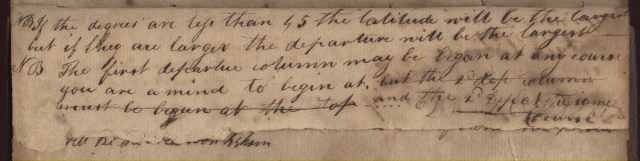 NB If the degrees are less than 45 the latitude will be the largest
but if they are larger the departure will be the largest
NB The first departue column may be began at any course
you are a mind to begin at, but the 2d dep column
must be begun at the top and the 2d at the same
course